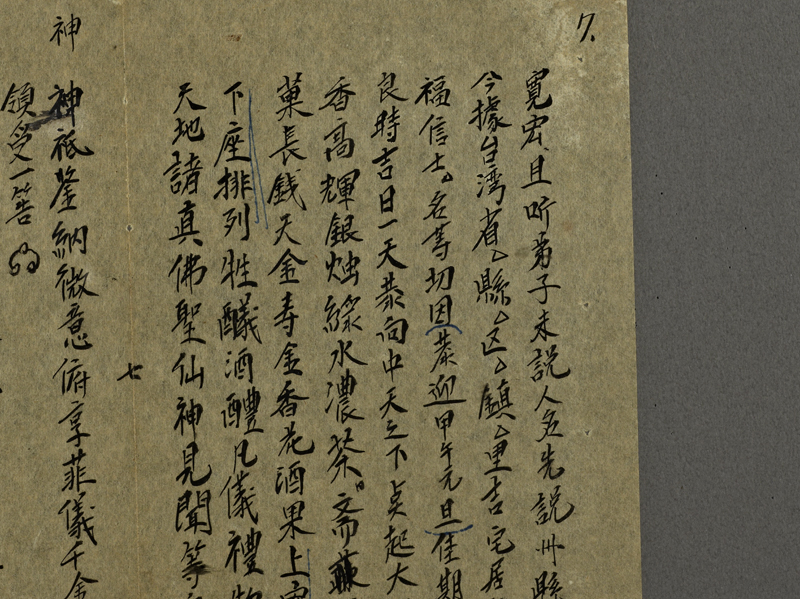 7.
寬宏且听弟子未説人名先説州縣
今據台湾省、縣、区、鎮、里吉宅居
福信士。名等切因恭迎甲午元旦佳期
良時吉日一天恭向中天之下貞起大
香高輝銀烛綠水濃茶。斋蔬
菓長銭天金寿金香花酒果上
下座排列牲醴酒醴凡儀禮物
天地諸真佛聖仙神見聞等
七
神祗鉴納微意俯享菲儀千金
神
領受一筶